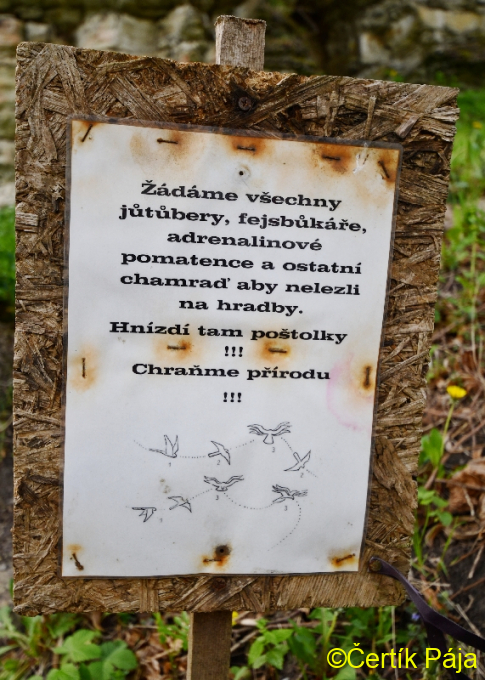 Žádáme všechny
jůtůbery, fejsbůkáře,
adrenalinové
pomatence a ostatní
chamraď aby nelezli
na hradby.
Hnízdí tam poštolky
!!!
Chraňme přírodu
!!!
1 2 3 4
1 2 3 4
©Čertík Pája